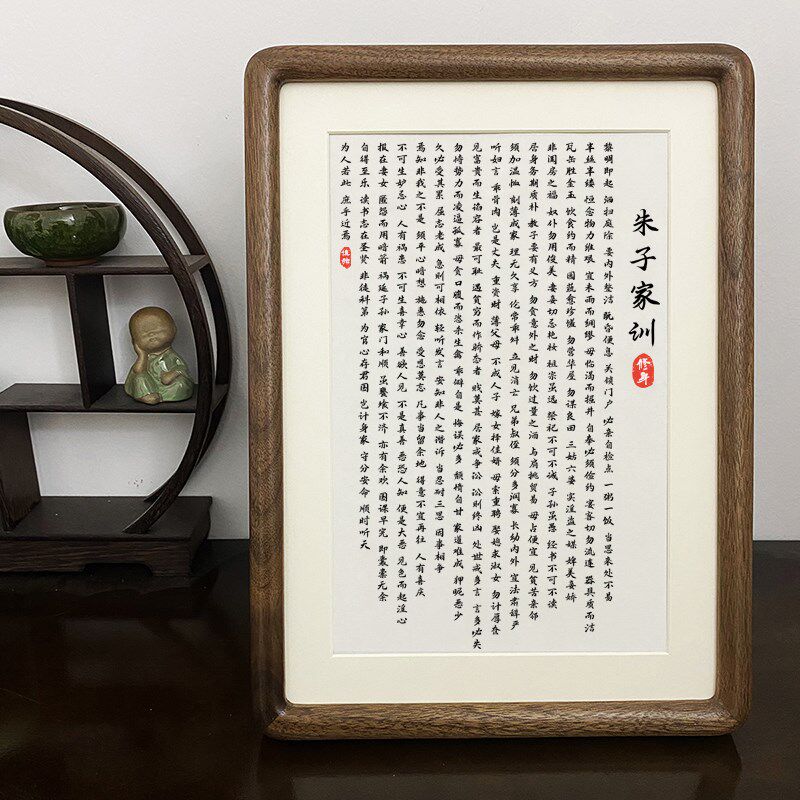 朱子家训
修身
黎明即起 洒扫庭除 要内外整洁 既昏便息 关锁门户 必亲自检点 一粥一饭 当思来处不易
半丝半缕 恒念物力维艰 宜未雨而绸缪 毋临渴而掘井 自奉必须俭约 宴客切勿流连 器具质而洁
瓦缶胜金玉 饮食约而精 园蔬愈珍馐 勿营华屋 勿谋良田 三姑六婆 实淫盗之媒 婢美妾娇
非闺房之福 奴仆勿用俊美 妻妾切忌艳妆 祖宗虽远 祭祀不可不诚 子孙虽愚 经书不可不读
居身务期质朴 教子要有义方 勿贪意外之财 勿饮过量之酒 与肩挑贸易 毋占便宜 见贫苦亲邻
须加温恤 刻薄成家 理无久享 伦常乖舛 立见消亡 兄弟叔侄 须分多润寡 长幼内外 宜法肃辞严
听妇言 乖骨肉 岂是丈夫 重资财 薄父母 不成人子 嫁女择佳婿 毋索重聘 娶媳求淑女 勿计厚奁
见富贵而生谄容者 最可耻 遇贫穷而作骄态者 贱莫甚 居家戒争讼 讼则终凶 处世戒多言 言多必失
勿恃势力而凌逼孤寡 毋贪口腹而恣杀生禽 乖僻自是 悔误必多 颓惰自甘 家道难成 狎昵恶少
久必受其累 屈志老成 急则可相依 轻听发言 安知非人之谮诉 当忍耐三思 因事相争
焉知非我之不是 须平心暗想 施惠勿念 受恩莫忘 凡事当留余地 得意不宜再往 人有喜庆
不可生妒忌心 人有祸患 不可生喜幸心 善欲人见 不是真善 恶恐人知 便是大恶 见色而起淫心
报在妻女 匿怨而用暗箭 祸延子孙 家门和顺 虽饔飧不济 亦有余欢 国课早完 即囊橐无余
自得至乐 读书志在圣贤 非徒科第 为官心存君国 岂计身家 守分安命 顺时听天
为人若此 庶乎近焉